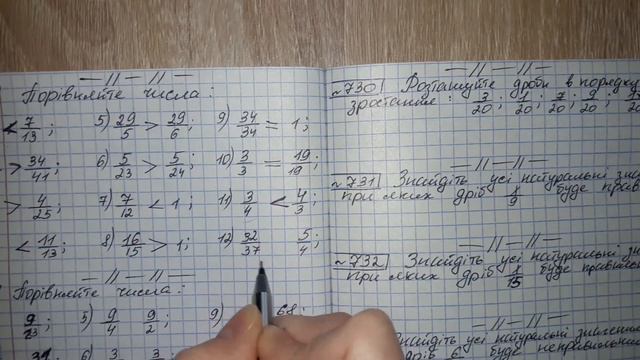 — // — // —
Порівняйте числа:
< 7/13; 5) 29/5 > 29/6; 9) 34/34 = 1;
> 34/41; 6) 5/23 > 5/24; 10) 3/3 = 19/19;
> 4/25; 7) 7/12 < 1; 11) 3/4 < 4/3;
< 11/13; 8) 16/15 > 1; 12) 32/37 5/4;
— // — // —
Порівняйте числа:
9/23; 5) 9/4 9/2; 9) 68;
6)
— // — // —
№730 Розташуйте дроби в порядку
зростання: 3/20; 1/20; 7/20; 9/20;
— // — // —
№731 Знайдіть усі натуральні
при яких дріб /9 буде
— // — // —
№732 Знайдіть усі натуральні
при яких дріб /15 буде
— // — // —
Знайдіть усі натуральні значення
дріб буде неправильним